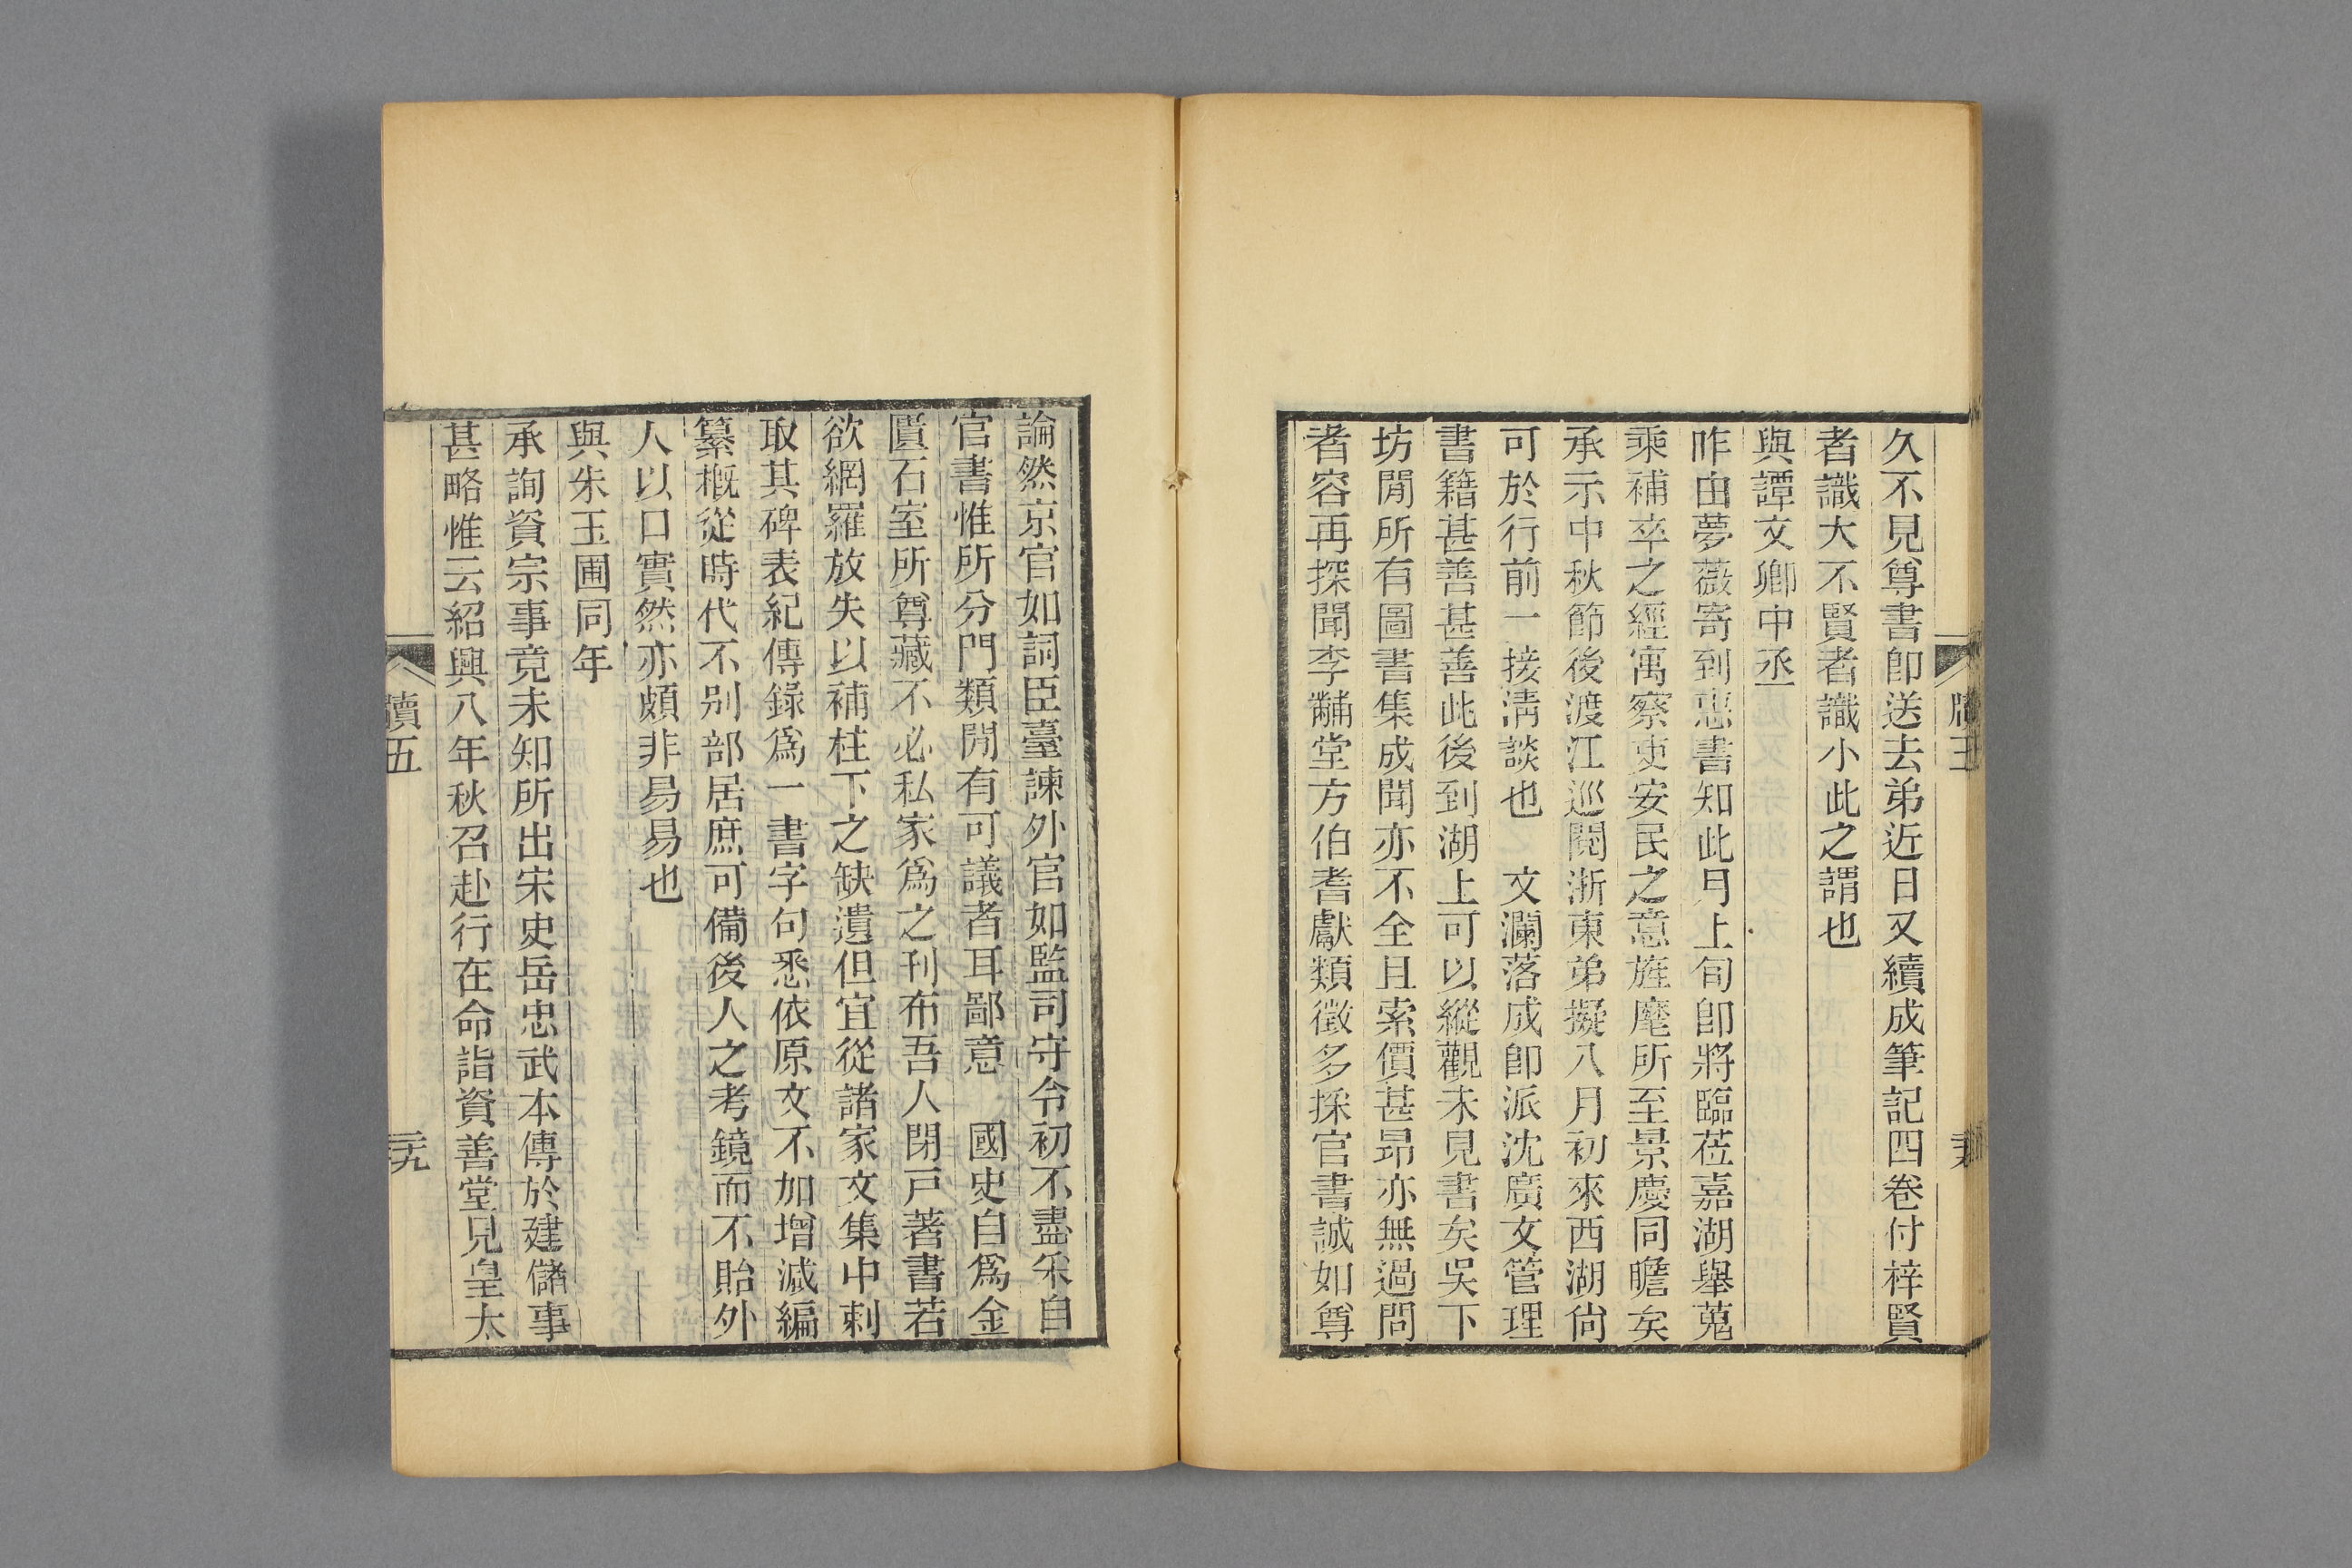 久不見尊書卽送去弟近日又續成筆記四卷付梓賢
者識大不賢者識小此之謂也
與譚文卿中丞
昨由夢薇寄到惠書知此月上旬卽將臨莅嘉湖舉蒐
乘補卒之經寓察吏安民之意旌麾所至景慶同瞻矣
承示中秋節後渡江巡閱浙東弟擬八月初來西湖尙
可於行前一接淸談也　文瀾落成卽派沈廣文管理
書籍甚善甚善此後到湖上可以縱觀未見書矣吳下
坊閒所有圖書集成聞亦不全且索價甚昻亦無過問
者容再探聞李黼堂方伯耆獻類徵多採官書誠如尊
論然京官如詞臣臺諫外官如監司守令初不盡采自
官書惟所分門類閒有可議者耳鄙意　國史自爲金
匱石室所尊藏不必私家爲之刊布吾人閉戸著書若
欲網羅放失以補柱下之缺遺但宜從諸家文集中刺
取其碑表紀傳錄爲一書字句悉依原文不加增減編
纂槪從時代不别部居庶可備後人之考鏡而不貽外
人以口實然亦頗非易易也
與朱玉圃同年
承詢資宗事竟未知所出宋史岳忠武本傳於建儲事
甚略惟云紹興八年秋召赴行在命詣資善堂見皇太
牘五
二十九